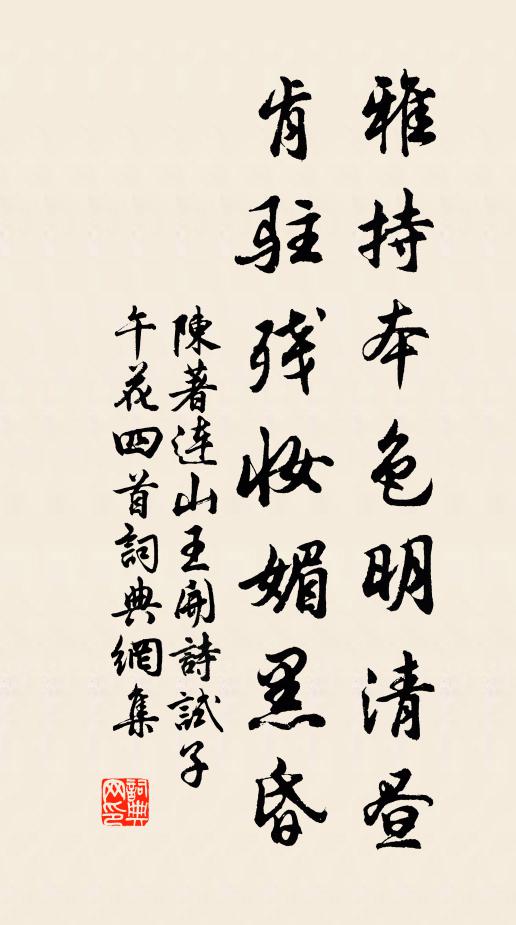 雅持本色明清昼
肯驻残妆媚黑昏
陳著連山王開詩試子
午花四首詞典網集
詞典网印